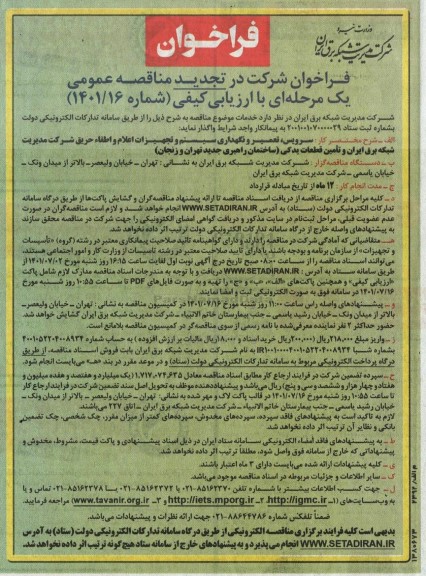 وزارت نیرو
شرکت مدیریت شبکه برق ایران
فراخوان
فراخوان شرکت در تجدید مناقصه عمومی
یک مرحله‌ای با ارزیابی کیفی (شماره ۱۴۰۱/۱۶)
شرکت مدیریت شبکه برق ایران در نظر دارد خدمات موضوع مناقصه به شرح ذیل را از طریق سامانه تدارکات الکترونیکی دولت
بشماره ثبت ستاد ۲۰۰۱۰۰۱۰۷۰۰۰۰۲۹ به پیمانکار واجد شرایط واگذار نماید:
الف – شرح مختصر کار: سرویس، تعمیر و نگهداری سیستم و تجهیزات اعلام و اطفاء حریق شرکت مدیریت
شبکه برق ایران و تأمین قطعات یدکی (ساختمان راهبری جدید تهران و زنجان)
ب – دستگاه مناقصه‌گزار: شرکت مدیریت شبکه برق ایران به نشانی: تهران – خیابان ولیعصر – بالاتر از میدان ونک –
خیابان یاسمی – شرکت مدیریت شبکه برق ایران
ج – مدت انجام کار: ۱۲ ماه از تاریخ مبادله قرارداد
د – کلیه مراحل برگزاری مناقصه از دریافت اسناد مناقصه تا ارائه پیشنهاد مناقصه‌گران و گشایش پاکت‌ها از طریق درگاه سامانه
تدارکات الکترونیکی دولت (ستاد) به آدرس WWW.SETADIRAN.IR انجام خواهد شد و لازم است مناقصه‌گران در صورت
عدم عضویت قبلی، مراحل ثبت‌نام در سایت مذکور و دریافت گواهی امضای الکترونیکی را جهت شرکت در مناقصه محقق سازند
به پیشنهادهای واصله خارج از درگاه سامانه تدارکات الکترونیکی دولت ترتیب اثر داده نخواهد شد.
هـ – متقاضیانی که آمادگی شرکت در مناقصه را دارند و دارای گواهینامه تائید صلاحیت پیمانکاری معتبر در رشته (گروه) «تأسیسات
و تجهیزات» از سازمان برنامه و بودجه باشند یا دارای تأیید صلاحیت معتبر در رشته تأسیسات از وزارت کار و امور اجتماعی هستند،
می‌توانند اسناد مناقصه را از ساعت ۰۸:۰۰ صبح تاریخ درج آگهی نوبت اول لغایت ساعت ۱۶:۱۵ روز شنبه مورخ ۱۴۰۱/۰۷/۰۲ از
طریق سامانه ستاد به آدرس: WWW.SETADIRAN.IR دریافت و با توجه به مندرجات اسناد مناقصه مدارک لازم شامل پاکت
«ارزیابی کیفی» و همچنین پاکت‌های «الف»، «ب» و «ج» را تهیه و به صورت فایل‌های PDF تا ساعت ۱۰:۵۵ روز شنبه مورخ
۱۴۰۱/۰۷/۱۶ در سامانه فوق به صورت الکترونیکی ثبت و امضا نمایند.
و – پیشنهادهای واصله راس ساعت ۱۱:۰۰ روز شنبه مورخ ۱۴۰۱/۰۷/۱۶ در کمیسیون مناقصه به نشانی: تهران – خیابان ولیعصر –
بالاتر از میدان ونک – خیابان رشید یاسمی – جنب بیمارستان خاتم الانبیاء – شرکت مدیریت شبکه برق ایران گشایش خواهد شد.
حضور حداکثر ۲ نفر نماینده معرفی‌شده با نامه رسمی از سوی مناقصه‌گر در کمیسیون مناقصه بلامانع است.
ز – واریز مبلغ ۲۱۸,۰۰۰ ریال (۲۰۰,۰۰۰ ریال خرید اسناد و ۱۸,۰۰۰ ریال مالیات بر ارزش افزوده) به حساب شماره
درگاه پرداخت الکترونیکی مربوط به سامانه تدارکات الکترونیکی دولت (ستاد) و در موعد مقرر در بند «هـ» می‌بایست انجام شود.
ح – سپرده تضمین شرکت در فرایند ارجاع کار مطابق اسناد مناقصه معادل ۱,۷۱۷,۰۷۴,۶۳۵ ریال (یک میلیارد و هفتصد و هفده میلیون و
هفتاد و چهار هزار و ششصد و سی و پنج) ریال می‌باشد و پیشنهاددهنده موظف به تحویل اصل سند تضمین شرکت در فرایند ارجاع کار
تا ساعت ۱۰:۵۵ روز شنبه مورخ ۱۴۰۱/۰۷/۱۶ در قالب پاکت لاک و مهر شده به نشانی: تهران – خیابان ولیعصر – بالاتر از میدان ونک –
خیابان رشید یاسمی – جنب بیمارستان خاتم الانبیاء – شرکت مدیریت شبکه برق ایران – اتاق ۲۲۷ می‌باشند.
لازم به تأکید است به پیشنهادهای فاقد سپرده، سپرده‌های مخدوش، سپرده‌های کمتر از میزان مقرر، چک شخصی، چک تضمین
بانکی و نظایر آن ترتیب اثر داده نخواهد شد.
ط – به پیشنهادهای فاقد امضاء الکترونیکی سامانه ستاد ایران در ذیل اسناد پیشنهادی و پاکت قیمت، مشروط، مخدوش و
پیشنهاداتی که خارج از سامانه فوق واصل شود، مطلقا ترتیب اثر داده نخواهد شد.
ی – کلیه پیشنهادات ارائه شده می‌بایست دارای ۳ ماه اعتبار باشند.
ک – سایر اطلاعات و جزئیات مربوطه در اسناد مناقصه موجود می‌باشد.
به وب‌سایت‌های ۱- http://igmc.ir ۲- http://iets.mporg.ir و ۳- http://www.tavanir.org.ir مراجعه فرمایید.
ضمناً تلفکس شماره ۸۸۶۴۴۷۸۶-۰۲۱ جهت ارائه نظرات و پیشنهادات می‌باشد.
بدیهی است کلیه فرایند برگزاری مناقصه الکترونیکی از طریق درگاه سامانه تدارکات الکترونیکی دولت (ستاد) به آدرس
WWW.SETADIRAN.IR انجام می‌پذیرد و به پیشنهادهای خارج از سامانه ستاد هیچ‌گونه ترتیب اثر داده نخواهد شد.